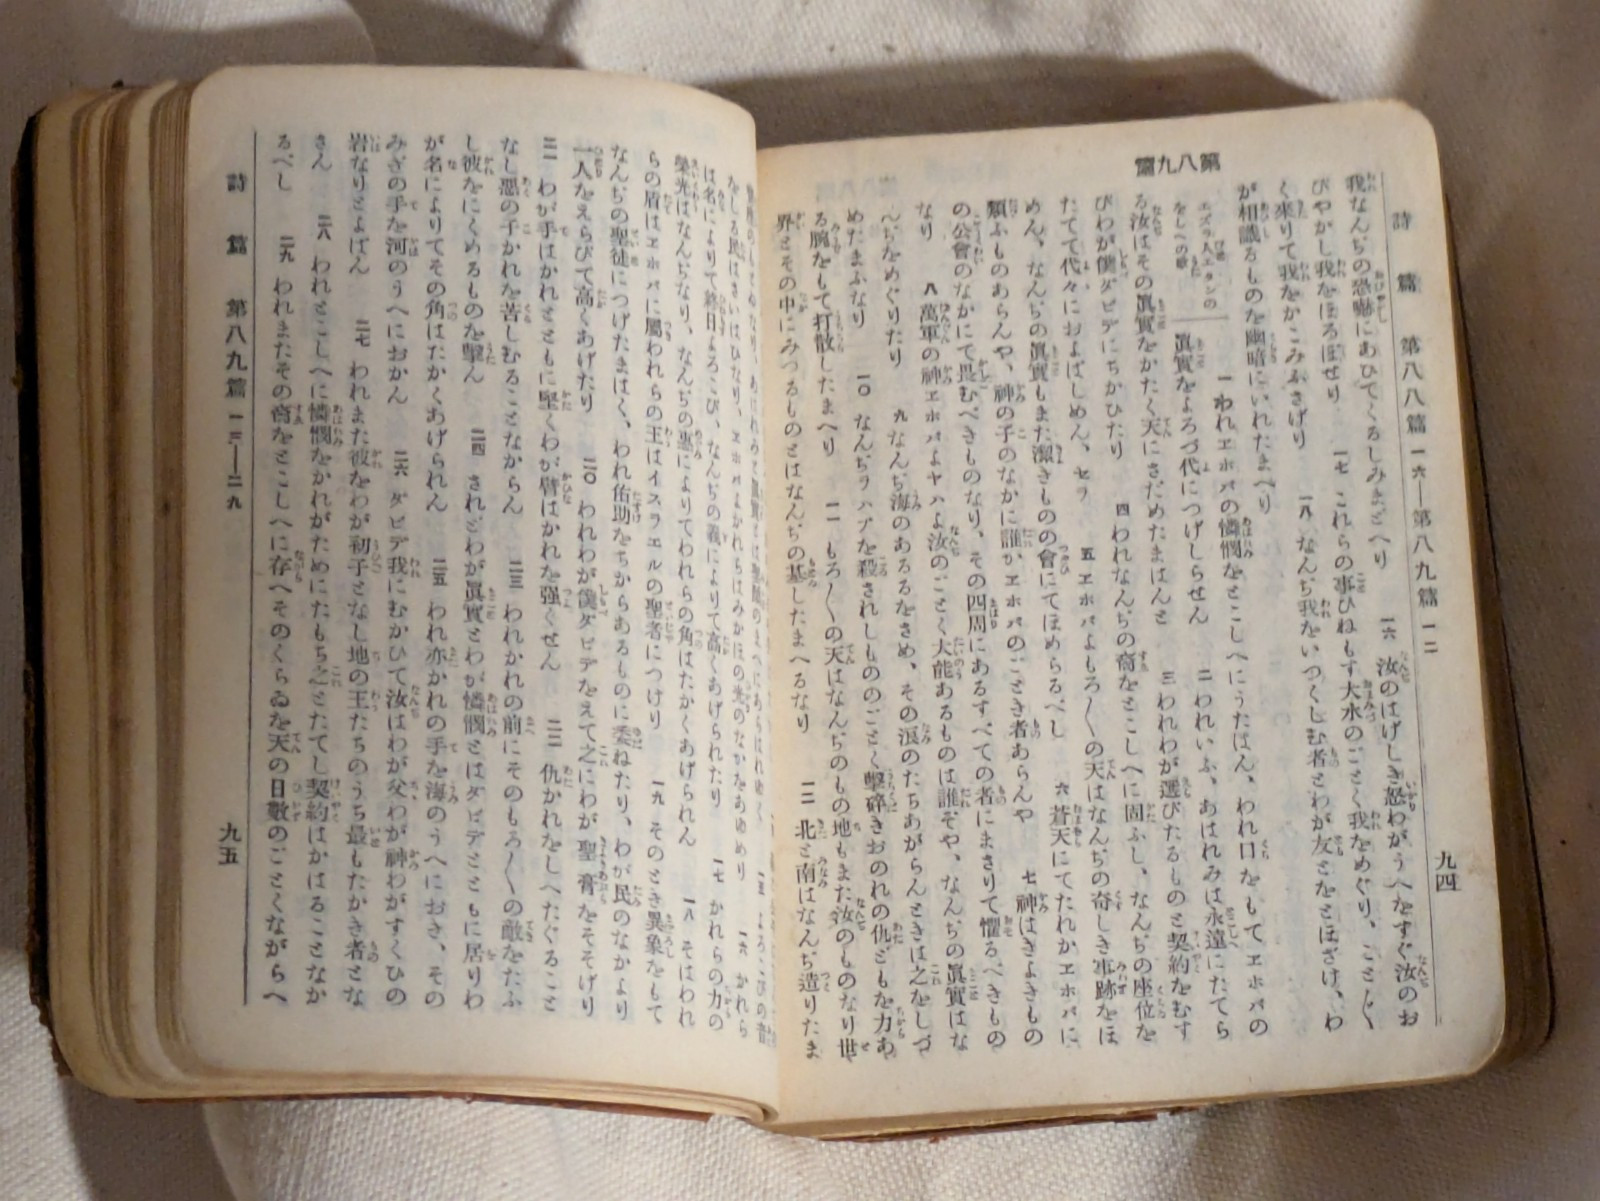 詩篇 第八八篇 一六―第八九篇 一二
九四
一六 汝のはげしき怒わがうへをすぐ汝のお
我なんぢの恐嚇にあひてくるしみまどへり 一七 これらの事ひねもす大水のごとく我をめぐり、ことごと
く來りて我をかこみふさげり 一八 なんぢ我をいつくしむ者とわが友とをとほざけ、わ
が相識るものを幽暗にいれたまへり
第八九篇
エズラ人エタンの
をしへの歌
一 われヱホバの憐憫をとこしへにうたはん、われ口をもてヱホバの
眞實をよろづ代につげしらせん 二 われいふ、あはれみは永遠にたてら
る汝はその眞實をかたく天にさだめたまはんと 三 われわが選びたるものと契約をむす
びわが僕ダビデにちかひたり 四 われなんぢの裔をとこしへに固ふし、なんぢの座位を
たてて代々におよばしめん、セラ 五 ヱホバよもろ〳〵の天はなんぢの奇しき事跡をほ
めん、なんぢの眞實もまた潔きものの會にてほめらるべし 六 蒼天にてたれかヱホバに
類ふものあらんや、神の子のなかに誰かヱホバのごとき者あらんや 七 神はきよきもの
の公會のなかにて畏むべきものなり、その四周にあるすべての者にまさりて懼るべきもの
なり 八 萬軍の神ヱホバよヤハよ汝のごとく大能あるものは誰ぞや、なんぢの眞實はな
んぢをめぐりたり 九 なんぢ海のあるるをさめ、その浪のたちあがらんときは之をしづ
めたまふなり 一〇 なんぢラハブを殺されしもののごとく擊碎きおのれの仇どもを力あ
る腕をもて打散したまへり 一一 もろ〳〵の天はなんぢのもの地もまた汝のものなり世
界とその中にみつるものとはなんぢの基したまへるなり 一二 北と南はなんぢ造りたま
一五 よろこびの音
をしる民はさいはひなり、ヱホバよかれらはみかほの光のなかをあゆめり 一六 かれら
は名によりて終日よろこび、なんぢの義によりて高くあげられたり 一七 かれらの力の
榮光はなんぢなり、なんぢの惠によりてわれらの角はたかくあげられん 一八 そはわれ
らの盾はヱホバに屬われらの王はイスラエルの聖者につけり 一九 そのとき異象をもて
なんぢの聖徒につげたまはく、われ佑助をちからあるものに委ねたり、わが民のなかより
一人をえらびて高くあげたり 二〇 われわが僕ダビデをえて之にわが聖膏をそそげり
二一 わが手はかれとともに堅くわが臂はかれを强くせん 二二 仇かれをしへたぐること
なし惡の子かれを苦しむることなからん 二三 われかれの前にそのもろ〳〵の敵をたふ
し彼をにくめるものを擊ん 二四 されどわが眞實とわが憐憫とはダビデとともに居りわ
が名によりてその角はたかくあげられん 二五 われ亦かれの手を海のうへにおき、その
みぎの手を河のうへにおかん 二六 ダビデ我にむかひて汝はわが父わが神わがすくひの
岩なりとよばん 二七 われまた彼をわが初子となし地の王たちのうち最もたかき者とな
さん 二八 われとこしへに憐憫をかれがためにたもち之とたてし契約はかはることなか
るべし 二九 われまたその裔をとこしへに存へそのくらゐを天の日數のごとくながらへ
詩篇 第八九篇 一三―二九
九五